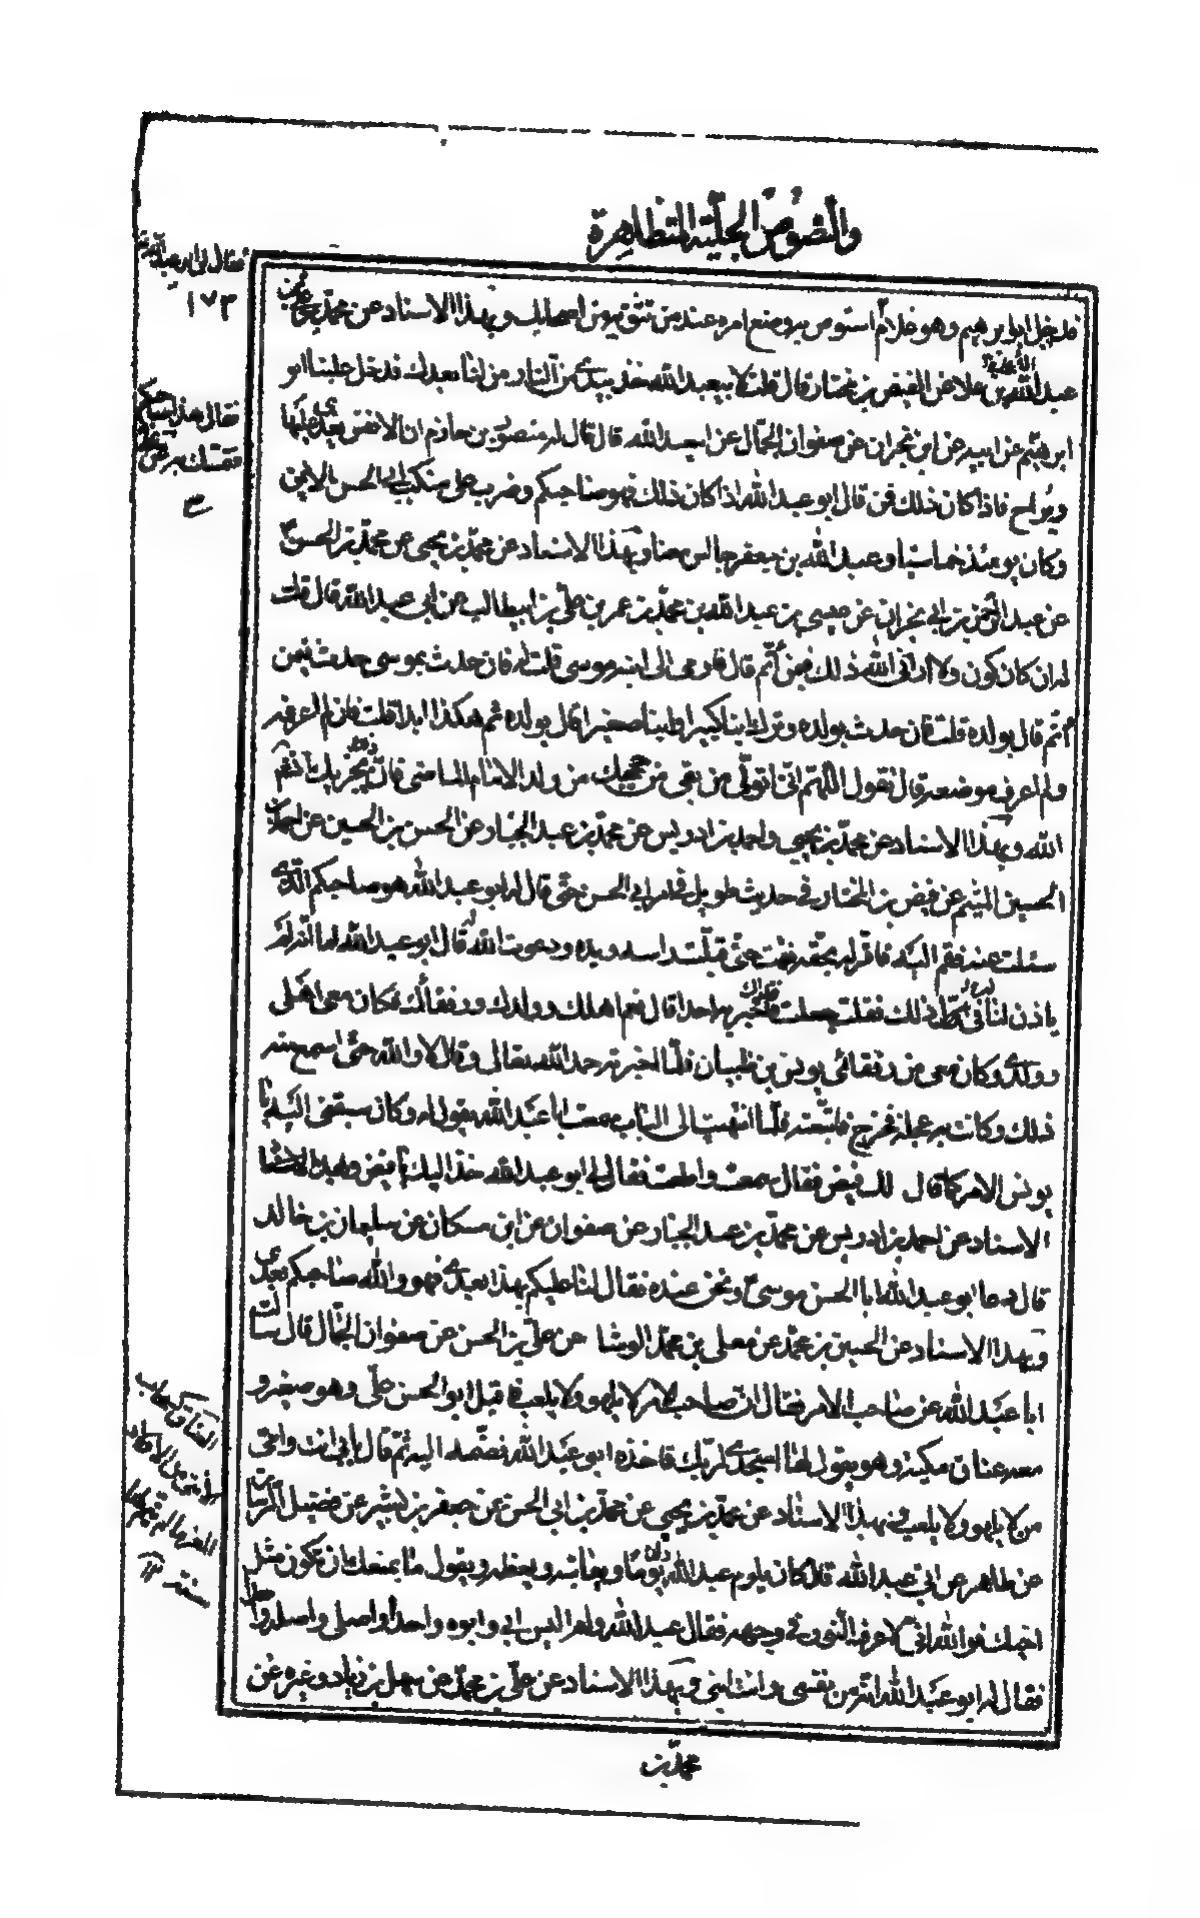 والنصوص الجلية المتظاهرة
فدخل ابو ابرهيم وهو غلام استوص به وضع امره عند من تثق به من اصحابك وبهذا الاسناد عن محمد بن يحيى عن
عبد الله بن عن الفيض بن مختار قال قلت لابيعبد الله خذ بيدي من النار من لنا بعدك فدخل علينا ابو
ابرهيم عن ابيه عن ابن نجران عن صفوان الجمال عن ابيعبد الله قال قال له منصور بن حازم ان الانفس يغدى عليها
ويراح فاذا كان ذلك فمن قال ابو عبد الله اذا كان ذلك فهو صاحبكم وضرب على منكب ابي الحسن الايمن
وكان يومئذ خماسيا وعبد الله بن جعفر جالس معنا وبهذا الاسناد عن محمد بن يحيى عن محمد بن الحسن
عن عبد الرحمن بن ابي نجران عن عيسى بن عبد الله بن محمد بن عمر بن علي بن ابيطالب عن ابي عبد الله قال قلت
له ان كان كون ولا اراني الله ذلك فبمن أئتم قال فاومى الى ابنه موسى قلت له فان حدث بموسى حدث فبمن
أئتم قال بولده قلت فان حدث بولده وترك ابنا كبيرا وابنا صغيرا قال بولده ثم هكذا ابدا قلت فان لم اعرفه
ولم اعرف موضعه قال تقول اللهم اني اتولى من بقي من حججك من ولد الامام الماضي فان ذلك يجزيك انشاء
الله وبهذا الاسناد عن محمد بن يحيى واحمد بن ادريس عن محمد بن عبد الجبار عن الحسن بن الحسين عن احمد بن
الحسين الميثمي عن فيض بن المختار في حديث طويل في امر ابي الحسن حتى قال له ابو عبد الله هو صاحبكم الذي
سئلت عنه فقم اليه فاقر له بحقه فقمت حتى قبلت راسه ويده ودعوت الله له قال ابو عبد الله اما انه لم
ياذن لنا في ذلك فقلت جعلت فداك فاخبر به احدا قال نعم اهلك وولدك ورفقائك فكان معي اهلي
وولدي وكان معي من رفقائي يونس بن ظبيان فلما اخبرتهم حمد الله تعالى وقال لا والله حتى اسمع منه
ذلك وكانت به عجلة فخرج فاتبعته فلما انتهيت الى الباب سمعت ابا عبد الله يقول له وكان سبقني اليه يا
يونس الامر كما قال لك فيض فقال سمعت واطعت فقال لي ابو عبد الله خذ اليك يا فيض وبهذا
الاسناد عن احمد بن ادريس عن محمد بن عبد الجبار عن صفوان عن ابن مسكان عن سليمان بن خالد
قال دعا ابو عبد الله ابا الحسن موسى ونحن عنده فقال لنا عليكم بهذا بعدي فهو والله صاحبكم بعدي
وبهذا الاسناد عن الحسين بن محمد عن معلى بن محمد الوشا عن علي بن الحسن عن صفوان الجمال قال سالت
ابا عبد الله عن صاحب الامر فقال ان صاحب الامر لا يلهو ولا يلعب فاقبل ابو الحسن علي وهو صغير و
معه عناق مكية وهو يقول لها اسجدي لربك فاخذه ابو عبد الله فضمه اليه ثم قال بابي انت وامي
من لا يلهو ولا يلعب وبهذا الاسناد عن محمد بن يحيى عن محمد بن ابي الحسن عن جعفر بن بشير عن فضيل الرسان
عن طاهر عن ابي عبد الله قال كان يلوم عبد الله يوما ويعاتبه ويعظه ويقول ما يمنعك ان تكون مثل
اخيك فوالله اني لاعرف النور في وجهه فقال عبد الله ولم اليس ابي وابوه واحدا واصلي واصله واحدا
فقال له ابو عبد الله انه من نفسي وانت ابني وبهذا الاسناد عن علي بن محمد عن سهل بن زياد وغيره عن
محمد بن
١٧٣
فقال هذا صاحبكم
فتمسك به
العناق كسحاب
الانثى من اولاد
المعز ما لم يتم لها
سنة ١٢